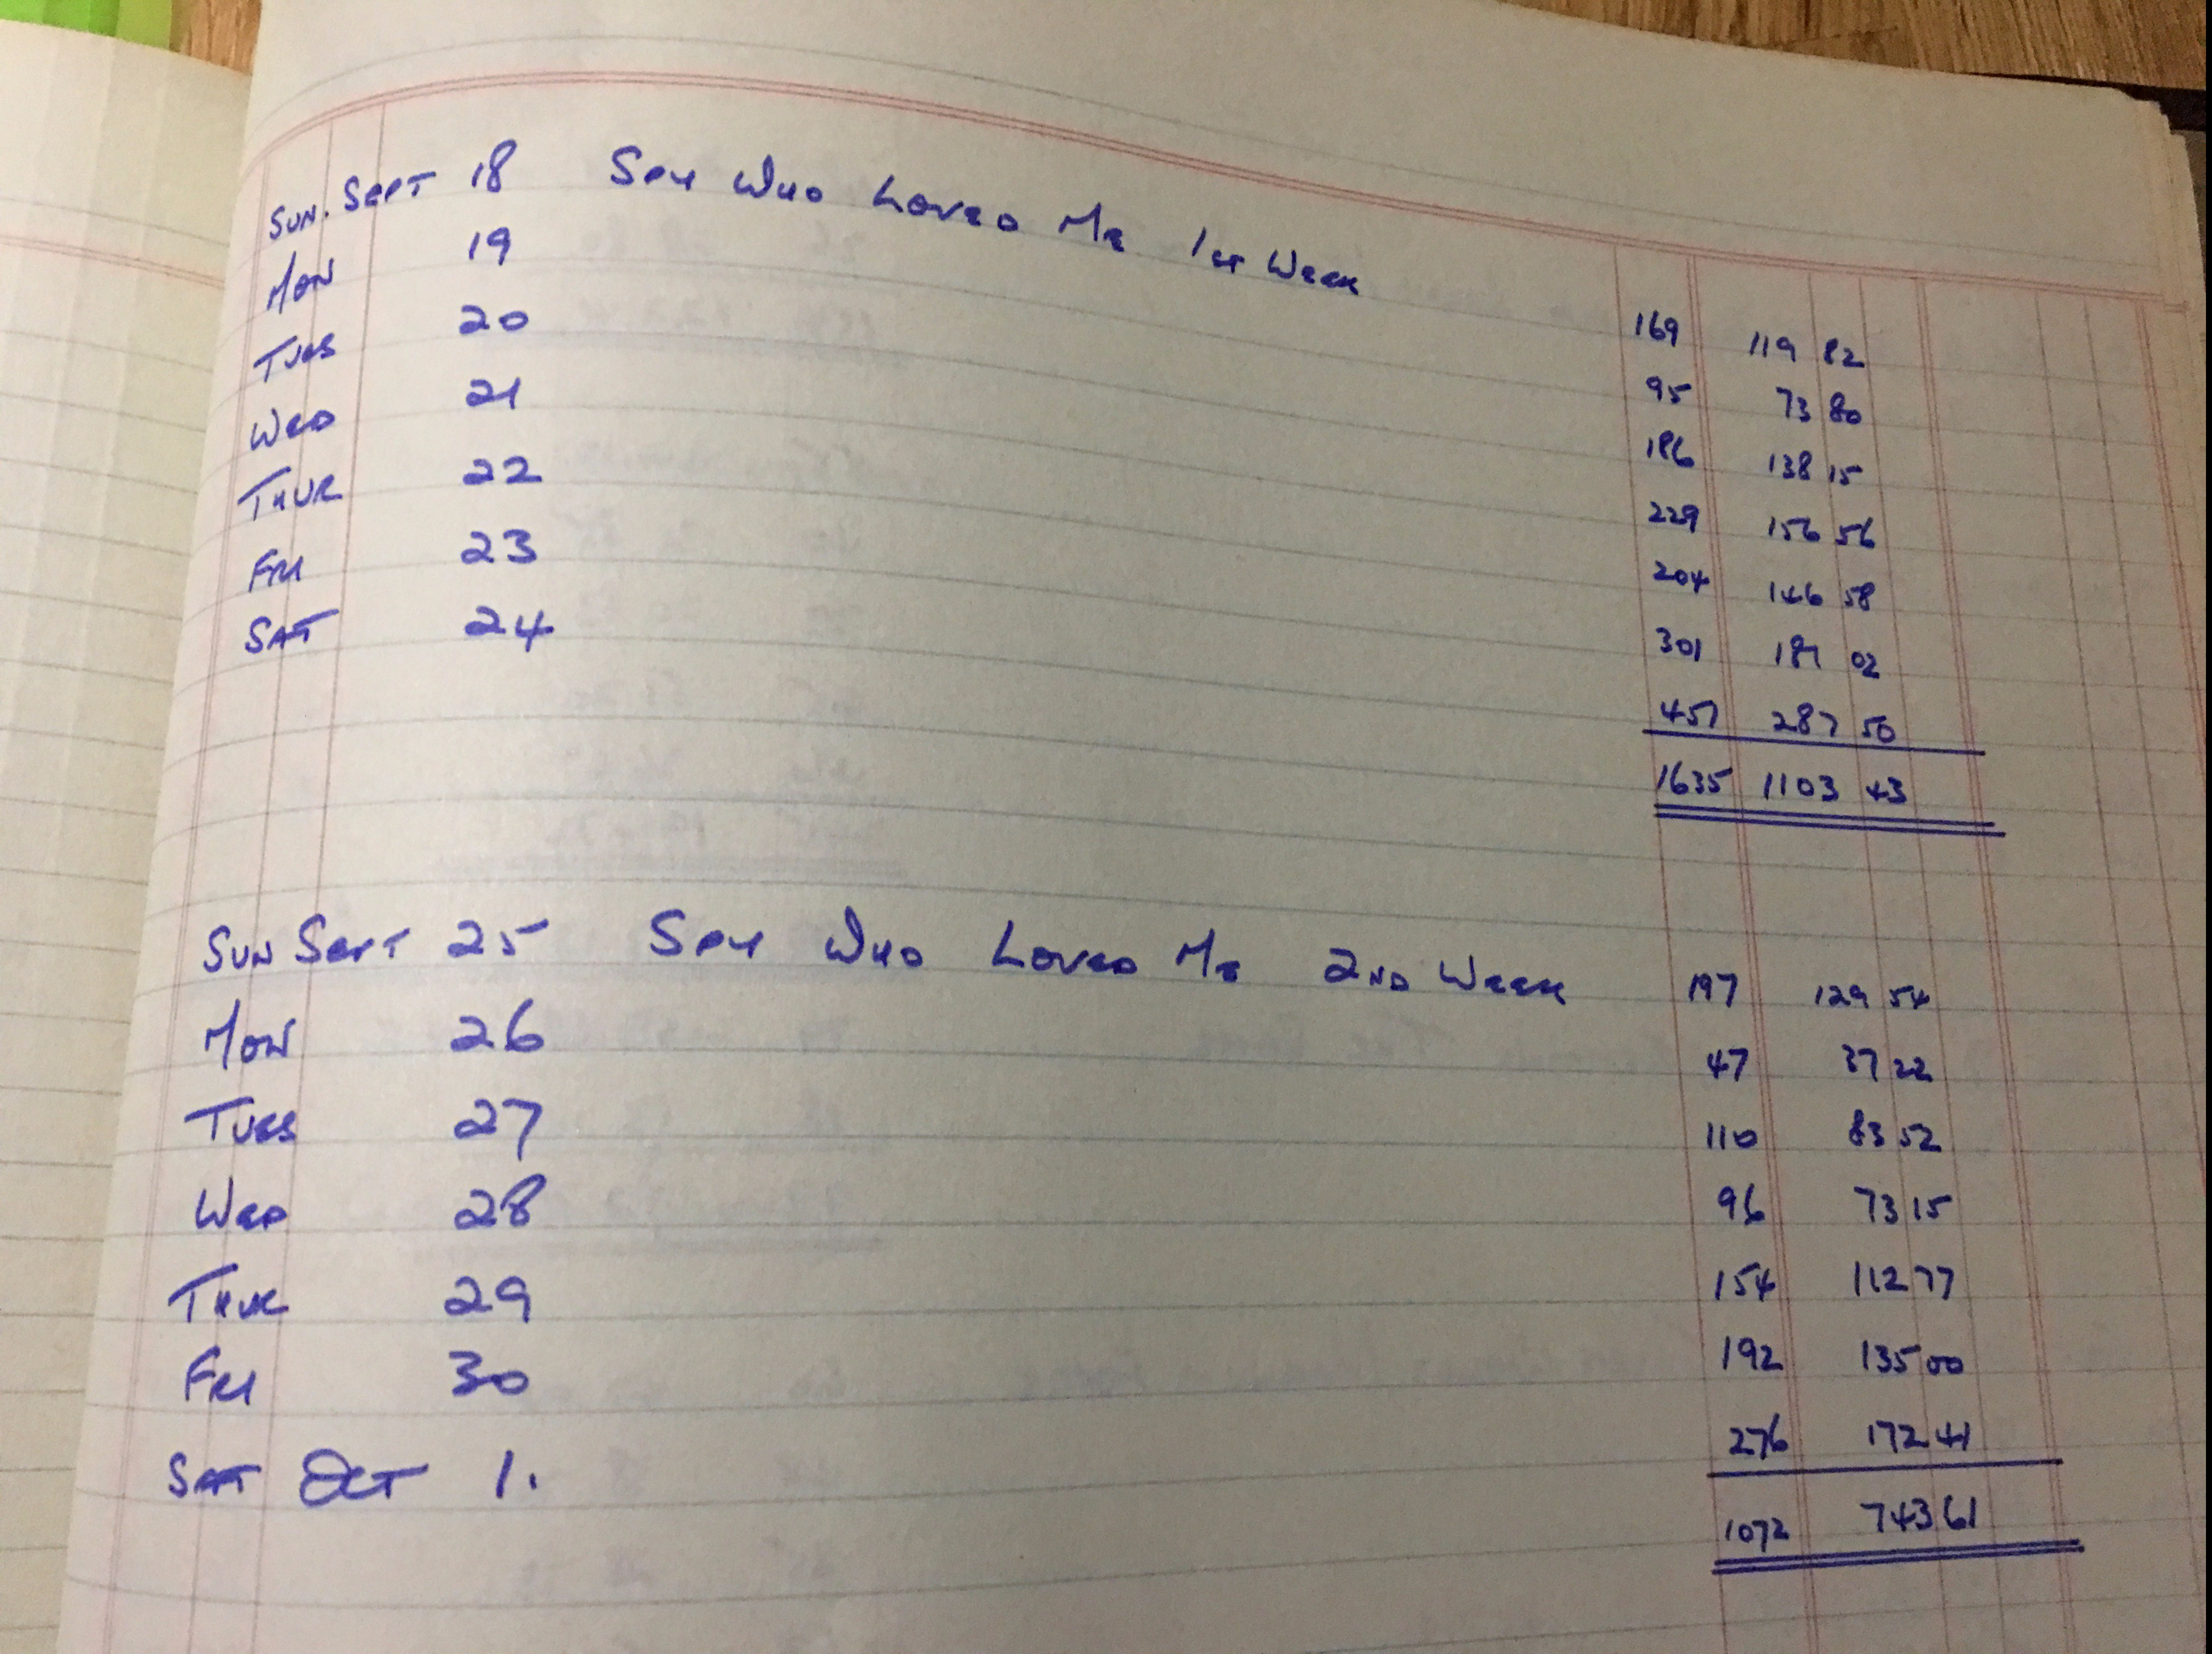 SUN. SEPT 18 SPY WHO LOVED ME 1ST WEEK 169 119 82
MON 19 95 73 80
TUES 20 186 138 15
WED 21 229 156 56
THUR 22 204 146 58
FRI 23 301 181 02
SAT 24 451 287 50
1635 1103 43
SUN SEPT 25 SPY WHO LOVED ME 2ND WEEK 197 129 54
MON 26 47 37 22
TUES 27 110 83 52
WED 28 96 73 15
THUR 29 154 112 77
FRI 30 192 135 00
SAT OCT 1. 276 172 41
1072 743 61